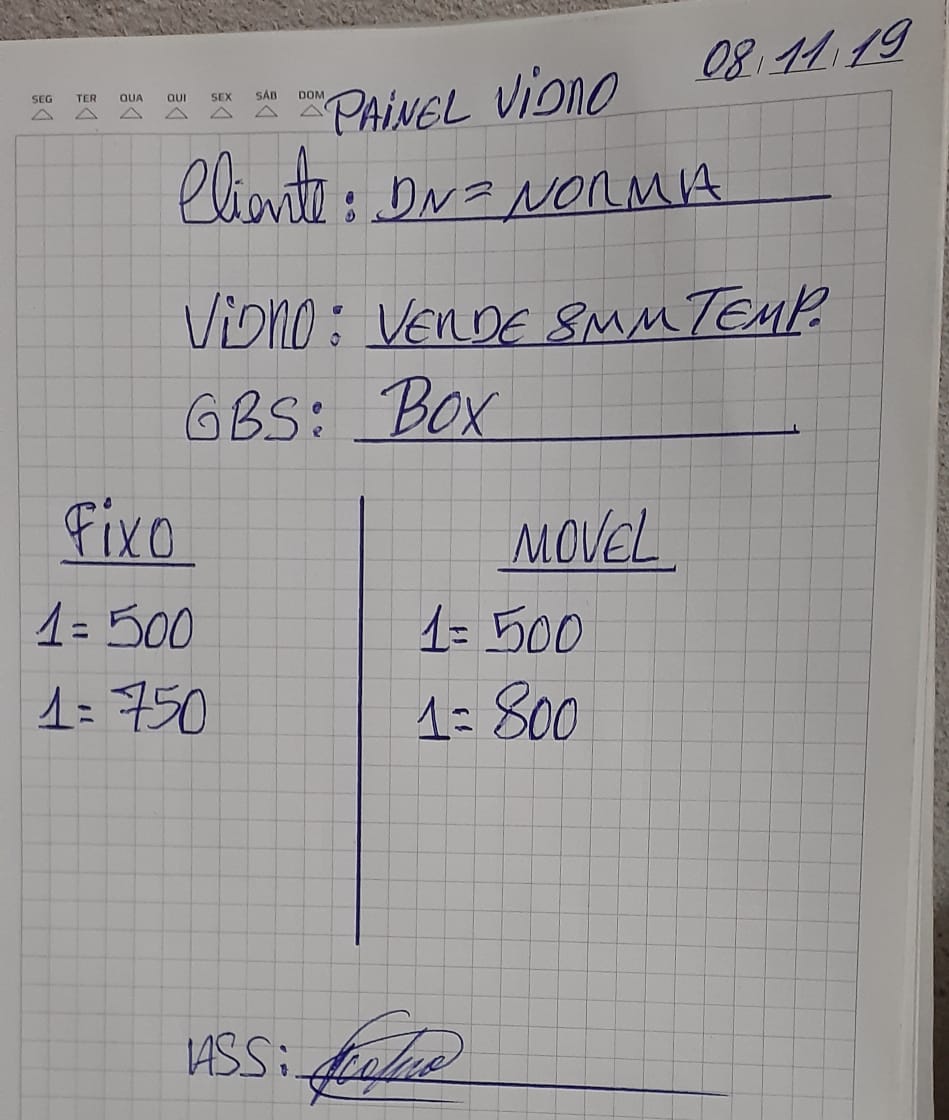 08.11.19
SEG TER QUA QUI SEX SÁB DOM
PAINEL VIDRO
Cliente: DN= NORMA
VIDRO: VERDE 8MM TEMP.
GBS: BOX
FIXO
1= 500
1= 750
MOVEL
1= 500
1= 800
ASS: